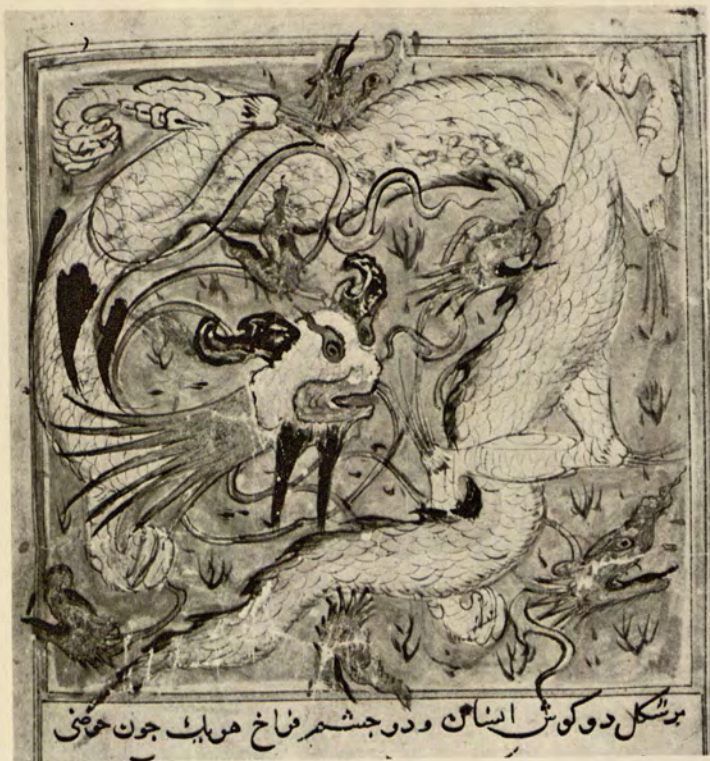 برشکل دو کوش انسان و دو جشم فراخ هریك جون حوضی